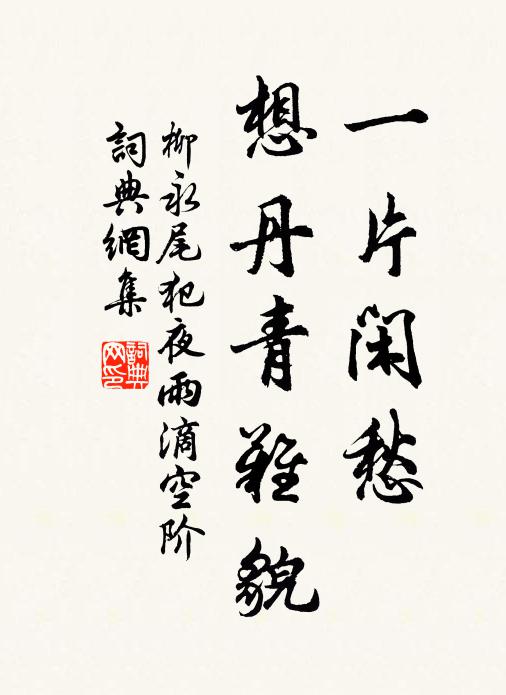 一片閑愁
想丹青難貌
柳永尾犯夜雨滴空阶
詞典網集
詞典網印